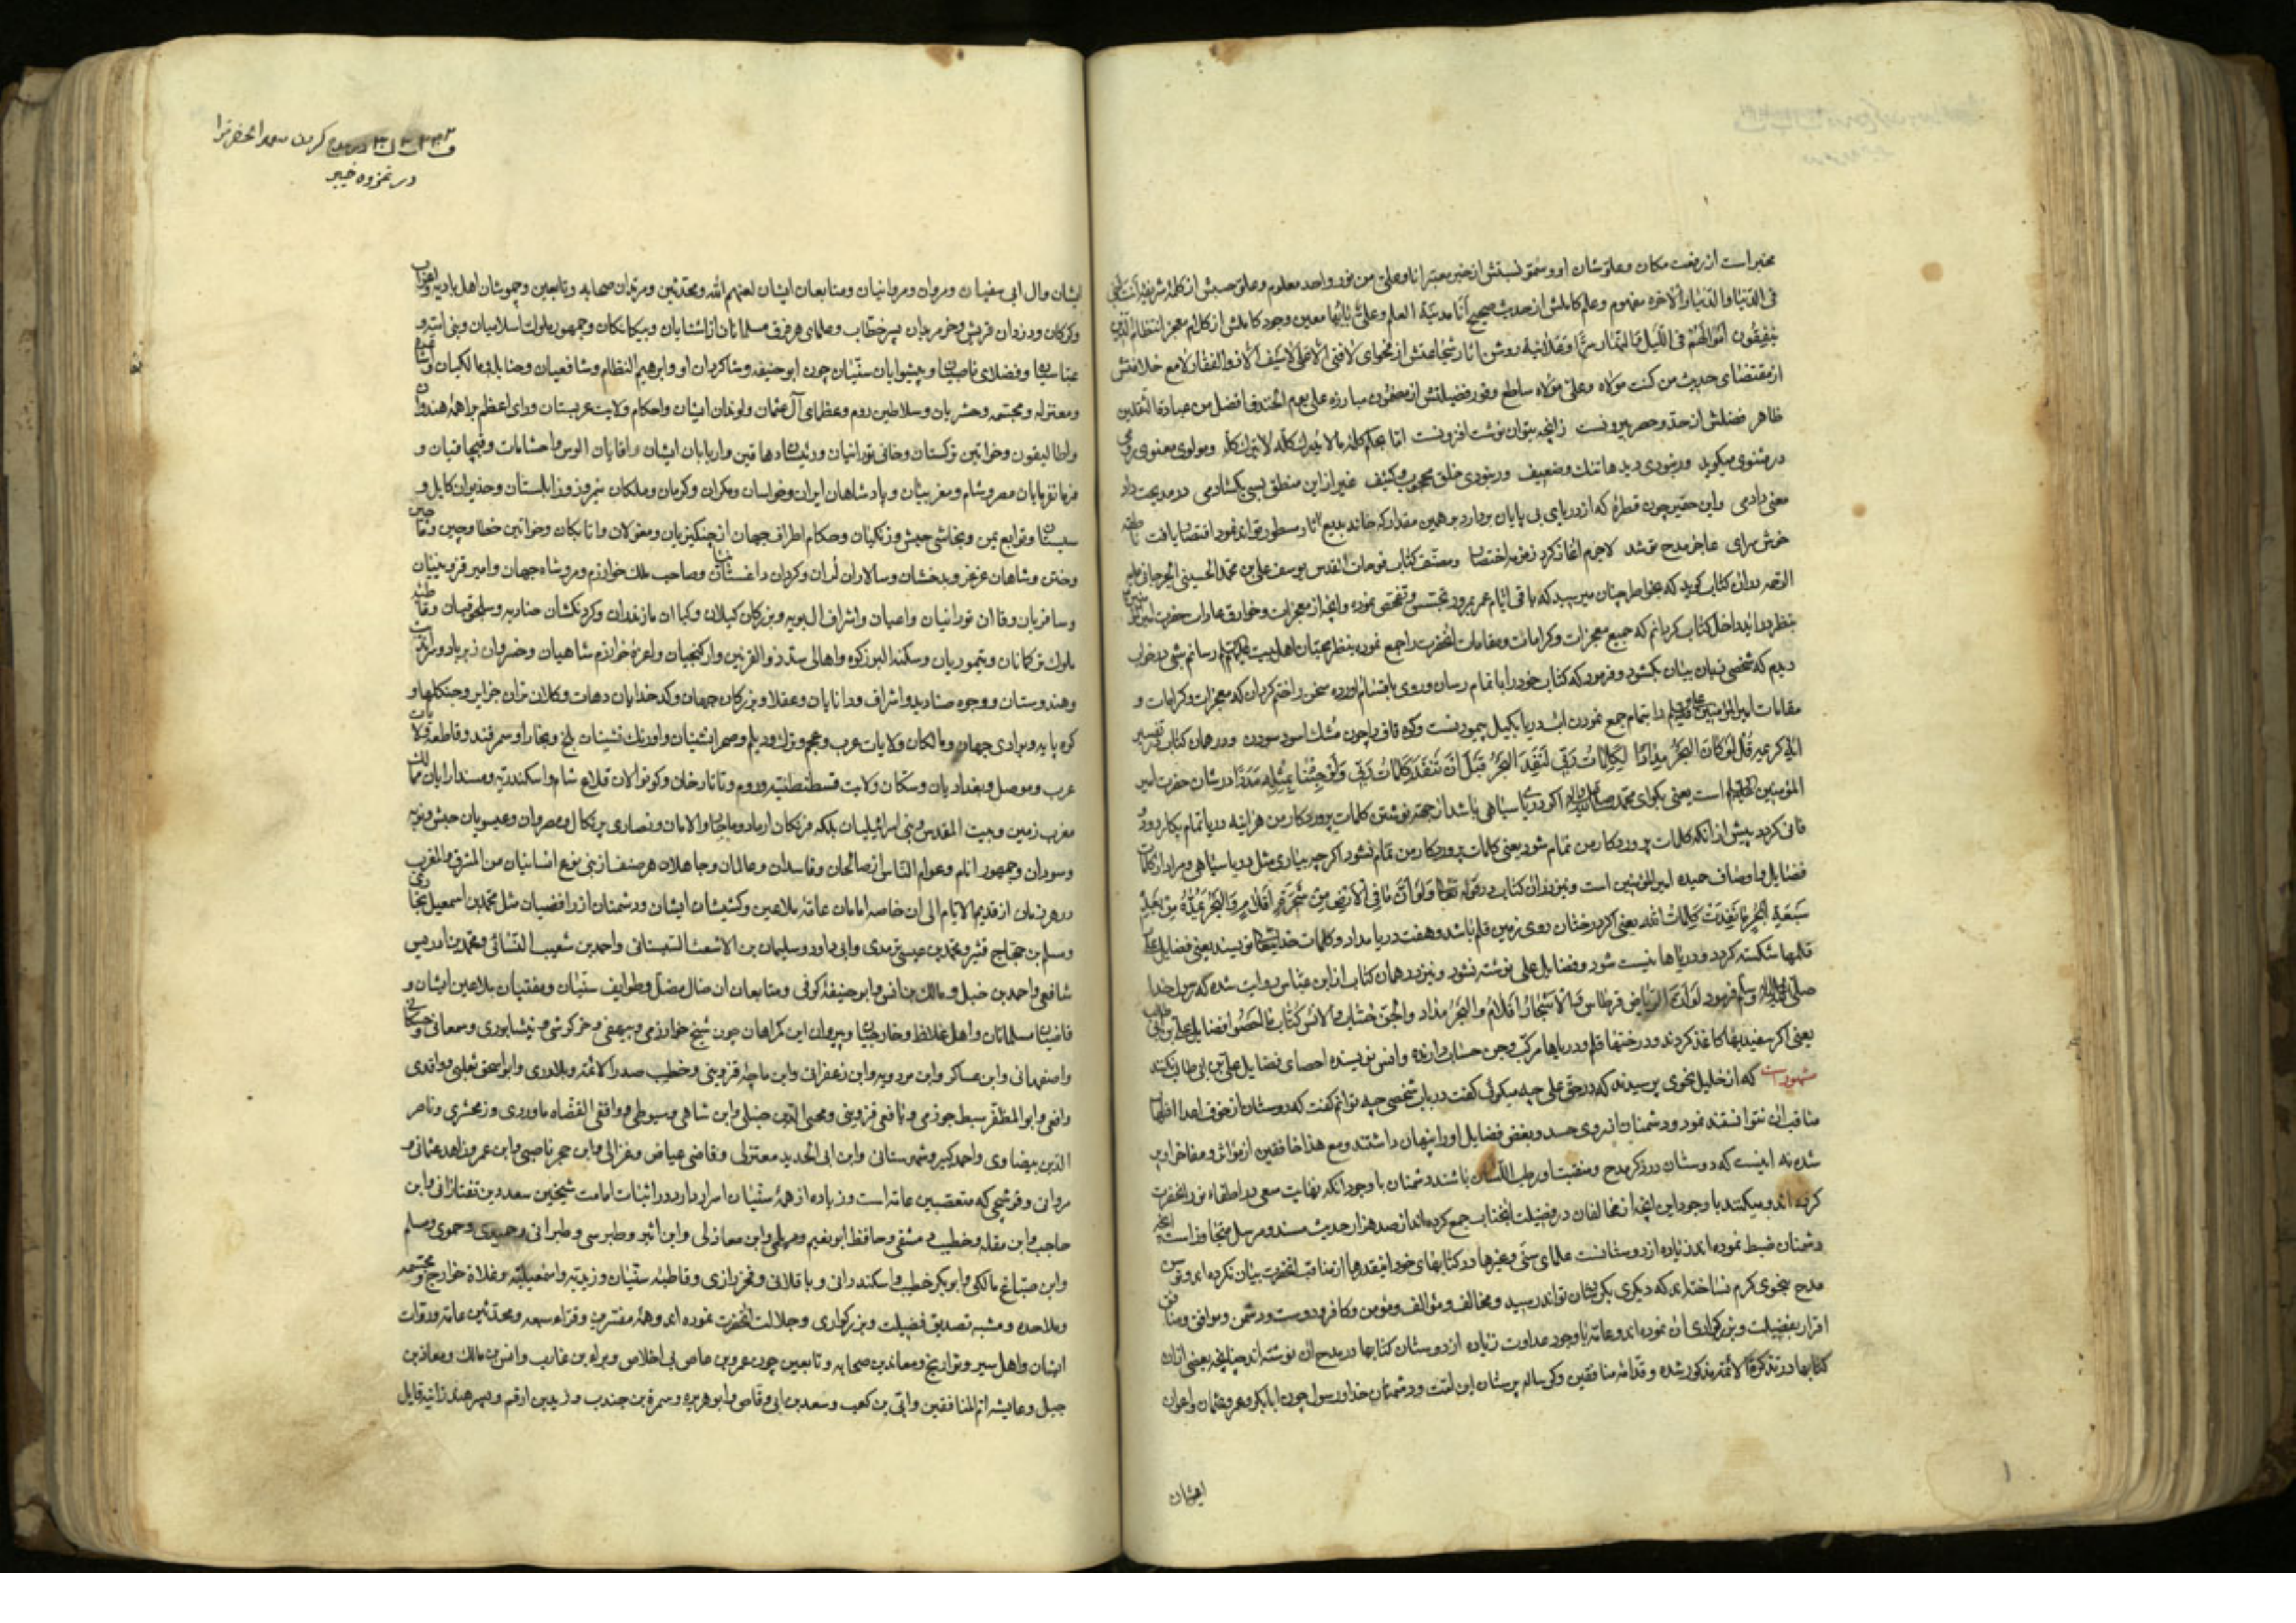 مخبر است از رفعت مکان و علو شان او و سمو نسبتش از خبر معتبر انا و علی من نور واحد معلوم و علو حسبش از کلمه شریفه انت اخی
فی الدنیا والاخره مفهوم و علم کاملش از حدیث صحیح انا مدینة العلم و علی بابها معین وجود کاملش از کلام معجز انتظام الذین
ینفقون اموالهم فی اللیل والنهار سرا وعلانیة روشن اثار شجاعتش از فحوای لا فتی الا علی لا سیف الا ذوالفقار لامع خلافتش
از مقتضای حدیث من کنت مولاه وعلی مولاه ساطع وفور فضیلتش از مضمون مبارزه علی یوم الخندق افضل من عبادة الثقلین
ظاهر فضلش از حد و حصر بیرونست زانچه بتوان نوشت افزونست اما بحکم کلمه ما لا یدرک کله لا یترک کله ومولوی معنوی رومی
در مثنوی میکوید ور نبودی دیدها تنک وضعیف ور نبودی خلق محجوب و کثیف غیر از این منطق لبی بکشادمی در مدیحت داد
معنی دادمی واین حقیر چون قطره که از دریای بی پایان بردارد بر همین مقدار که خانه بدیع اثار سطور تواند نمود اقتصار یافت
خوش سرای عاجز مدح تو شد لاجرم اغاز کرد زمزمه اختصار ومصنف کتاب فوحات القدس یوسف علی بن محمد الحسینی الجرجانی علیه
الرحمه در ان کتاب کوید که بخاطر چنان میرسید که باقی ایام عمر بمرور تجسس وتفحص نموده وانچه از معجزات وخوارق عادات حضرت امیر
بنظر در اید داخل کتاب کردانم که جمیع معجزات وکرامات ومقامات انحضرت را جمع نموده بنظر محبان اهل بیت رسانم شبی در خواب
دیدم که شخصی زبان ببیان بکشود و فرمود که کتاب خود را باتمام رسان وروی باقتسام اورده سخن را ختم کردان که معجزات وکرامات و
مقامات امیر المؤمنین علیه السلام را بتمام جمع نمودن اب دریا بکیل پیمودنست وکوه قاف را چون مشک اسود سودن ودر همان کتاب در تفسیر
ایه کریمه قل لو کان البحر مدادا لکلمات ربی لنفد البحر قبل ان تنفد کلمات ربی ولو جئنا بمثله مددا در شان حضرت امیر
المؤمنین علیه السلام است یعنی بکو ای محمد اکر دریا سیاهی باشد از جهة نوشتن کلمات پروردکار من هر اینه دریا تمام بکار رود و
فانی کردد پیش از انکه کلمات پروردکار من تمام شود یعنی کلمات پروردکار من تمام نشود اکر چه بیاری مثل دریا سیاهی ومراد از کلمات
فضایل و اوصاف حمیده امیر المؤمنین است ونیز در ان کتاب در قوله تعالی ولو ان ما فی الارض من شجرة اقلام والبحر یمده من بعده
سبعة ابحر ما نفدت کلمات الله یعنی اکر درختان روی زمین قلم باشد وهفت دریا مداد وکلمات خدایتعالی نویسند یعنی فضایل علی
قلمها شکسته کردد ودریاها نیست شود وفضایل علی نوشته نشود ونیز در همان کتاب از ابن عباس روایت شده که رسول خدا
صلی الله علیه واله وسلم فرمود لو ان الریاض قرطاس والاشجار اقلام والبحر مداد والجن حساب والانس کتاب ما احصوا فضایل علی بن ابی طالب
یعنی اکر سفیدیها کاغذ کردند ودرختها قلم ودریاها مرکب وجن حساب دارنده وانس نویسنده احصای فضایل علی بن ابی طالب نکنند
مشهور است که از خلیل نحوی پرسیدند که در حق علی چه میکوئی کفت در باب شخصی چه توانم کفت که دوستان از خوف اعدا اظهار
مناقب ان نتوانستند نمود ودشمنان از روی حسد وبغض فضایل اورا پنهان داشتند ومع هذا خافقین از ماثر و مفاخر او پر
شده نه اینست که دوستان در ذکر مدح ومنقبت او رطب اللسان باشند دشمنان با وجود انکه نهایت سعی در اطفاء نور انحضرت
کرده اند ومیکنند با وجود این انچه از مخالفان در فضیلت انجناب جمع کرده اند از صد هزار حدیث مسند ومرسل متجاوز است انچه
دشمنان ضبط نموده اند زیاده از دوستانست علمای سنی وغیرها در کتابهای خود اینقدرها از مناقب انحضرت بیان نکرده اند وقوس
مدح بنحوی کرم نساخته اند که دیکری بکرد شان تواند رسید ومخالف ومؤالف ومؤمن وکافر ودوست ودشمن وموافق ومنافق
اقرار بفضیلت وبزرکواری ان نموده اند وعامه با وجود عداوت زیاده از دوستان کتابها در مدح ان نوشته اند چنانچه بعضی از ان
کتابها در تذکرة الائمه مذکور شده و قدمای منافقین وکوساله پرستان این امت ودشمنان خدا ورسول چون ابابکر وعمر وعثمان واعوان
ایشان
در مدح کردن سعد انحضرت را
در غزوه خیبر
ایشان وال ابی سفیان ومروان ومروانیان ومتابعان ایشان لعنهم الله ومحدثین ومرتدان صحابه وتابعین وجموشان اهل بادیه واعراب
وکرکان ودزدان قریش وخرمریدان پسر خطاب وعلمای هر فرق مسلمانان از اشنایان وبیکانکان وجمهور ملوک اسلامیان وبنی امیه و
عباسیان وفضلای ناصبیان وپیشوایان سنیان چون ابو حنیفه وشاکردان او وابرهیم النظام وشافعیان وحنابله ومالکیان
ومعتزله ومجسمه وحشریان وسلاطین روم وعظمای آل عثمان واحکام ولایت عربستان ورای اعظم براهمه هندوان
واطالیقون وخواتین ترکستان وخانی تورانیان ورئیسان دهاقین واربابان ایشان واقایان الوس واحشامات وقبچاقیان و
فرمانفرمایان مصر وشام ومغربیان وپادشاهان ایران وخراسان ومکران وکرمان وملکان نیمروز وزابلستان وخدیوان کابل و
سیستان وتوابع یمن ونجاشی حبش وزنکیان وحکام اطراف جهان از چنکیزیان ومغولان واتابکان وخواتین خطا وچین
وختن وشاهان غزنه وبدخشان وسالاران لران وکردان داغستان وصاحب ملک خوارزم ومروشاه جهان وامیر قزوینیان
وسافریان وقاان تورانیان واعیان واشراف ال بویه وبزرکان کیلان وکیاان مازندران وکردنکشان وسلجوقیان
ملوک ترکمانان وتیموریان وسکنه البرز کوه واهالی سد ذوالقرنین وارکنجیان واعزه خوارزم شاهیان وخسروان
وهندوستان ووجوه صنادید واشراف ودانایان وعقلا وبزرکان جهان وکدخدایان دهات وکلانتران جزایر وجنکلها و
کوه پایه وبراری جهان ومالکان ولایات عرب وعجم وترک ودیلم وصحرانشینان واورنک نشینان بلخ وبخارا وسمرقند
عرب وموصل وبغدادیان وسکان ولایت قسطنطنیه وروم وتاتارخان وکوتوالان قلاع شام واسکندریه ومسندارایان ممالک
مغرب زمین وبیت المقدس وبنی اسرائیلیان بلکه فرنکان ونصاری پرتکال ومصریان وعیسویان حبش ونوبه
وسودان وجمهور انام وعوام الناس از صالحان وفاسدان وعالمان وجاهلان هر صنف از بنی نوع انسانیان من المشرق والمغرب
در هر زمان از قدیم الایام الی الان خاصه امامان عامه ملاعین وکشیشان ایشان ودشمنان از رافضیان مثل محمد بن اسمعیل بخاری
ومسلم بن حجاج قشیری ومحمد بن عیسی ترمدی وابی داود وسلیمان بن الاشعث السیستانی واحمد بن شعیب النسائی ومحمد بن ادریس
شافعی واحمد بن حنبل ومالک بن انس وابو حنیفه کوفی ومتابعان ان ضال مضل وطوایف سنیان ومفتیان ملاعین ایشان و
قاضیان مسلمانان واهل غلاظ وخارجیان وپیروان این کمراهان چون شیخ خوارزمی وبیهقی وخرکوشی ونیشابوری وسمعانی
واصفهانی وابن عساکر وابن مردویه وابن زعفرانی وابن ماجه قزوینی وخطیب صدر الائمه وبلادری وابو اسحق ثعلبی وواقدی
رافعی وابو المظفر سبط جوزی ویافعی قزوینی ومحیی الدین حنبلی وابن شاهی وسیوطی وواقفی القضاه ماوردی وزمخشری وناصر
الدین بیضاوی واحمد کبیر وشهرستانی وابن ابی الحدید معتزلی وقاضی عیاض وغزالی وابن حجر ناصبی وابن عمر وزاهد عثمانی و
مروانی وقوشچی که متعصبین عامه است وزیاده از همه سنیان اصرار دارد در اثبات امامت شیخین سعد بن تفتازانی وابن
حاجب وابن مقله وخطیب دمشقی وحافظ ابو نعیم ودیلمی وابن مغازلی وابن اثیر وطبرسی وطبرانی وحمیدی وحموی ومسلم
وابن صباغ مالکی وابو بکر خطیب واسکندرانی وباقلانی وفخر رازی وقاطبه سنیان وزیدیه واسمعیلیه وغلاة خوارج ومجسمه
وملاحده ومشبه تصدیق فضیلت وبزرکواری وجلالت انحضرت نموده اند وهمه مفسرین وقراء سبعه ومحدثین عامه وروات
ایشان واهل سیر وتواریخ ومعاندین صحابه وتابعین چون عمرو بن عاص بی اخلاص وبراء بن عازب وانس بن مالک ومعاذ بن
جبل وعایشه ام المنافقین وابی بن کعب وسعد بن ابی وقاص وابو هریره وسمرة بن جندب وزید بن ارقم وپسر هند زانیه قایل